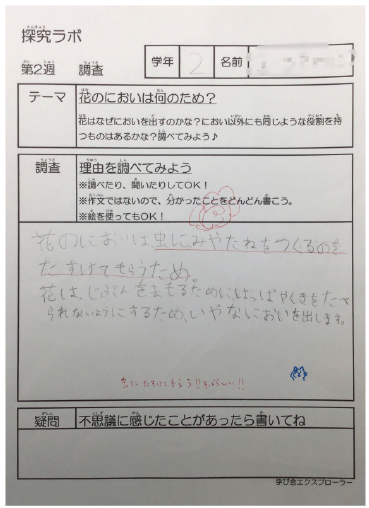 探究ラボ
第2週 調査
学年 2 名前
テーマ 花のにおいは何のため？
花はなぜにおいを出すのかな？におい以外にも同じような役割を持
つものはあるかな？調べてみよう♪
調査 理由を調べてみよう
※調べたり、聞いたりしてOK！
※作文ではないので、分かったことをどんどん書こう。
※絵を使ってもOK！
花のにおいは、虫にみやたねをつくるのを
たすけてもらうため。
花は、じぶんをまもるためにはっぱやくきをたべ
られないようにするため、いやなにおいを出します。
虫にたすけてもらう!!すばらしい!!
疑問 不思議に感じたことがあったら書いてね
学び舎エクスプローラー